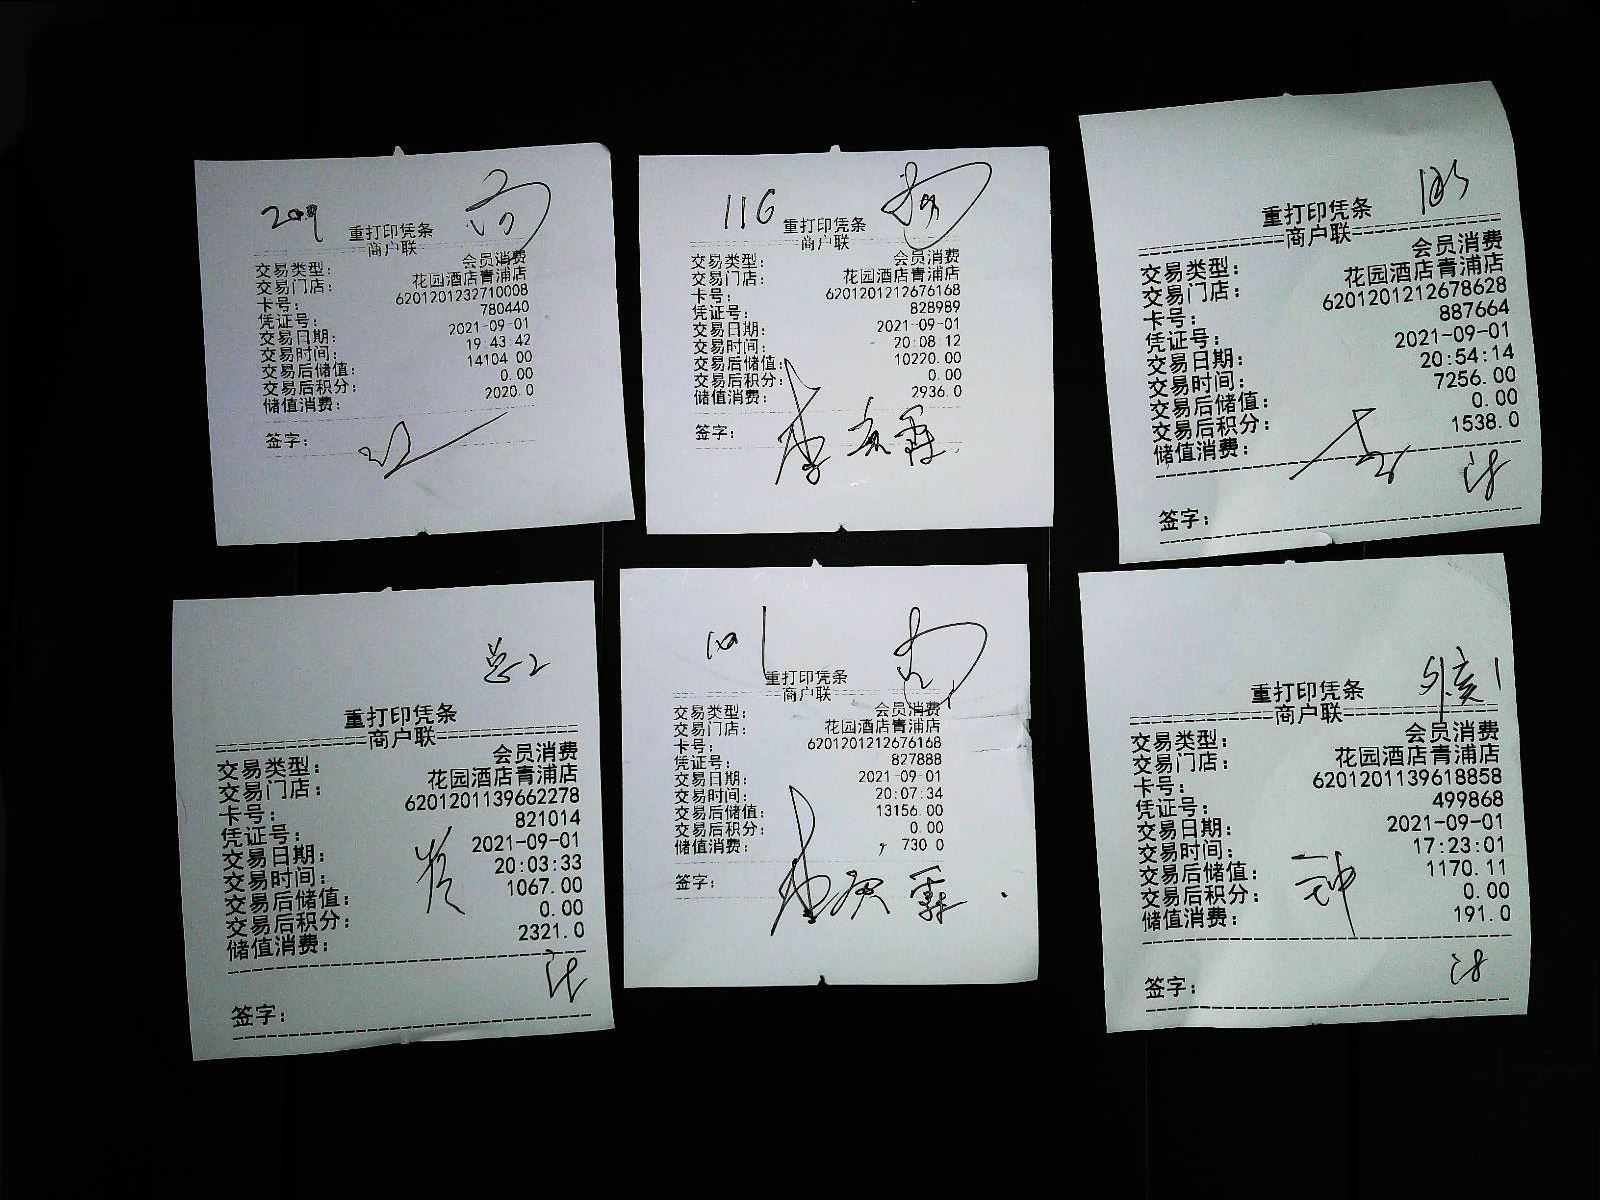 209
重打印凭条
商户联
交易类型: 会员消费
交易门店: 花园酒店青浦店
卡号: 6201201232710008
凭证号: 780440
交易日期: 2021-09-01
交易时间: 19:43:42
交易后储值: 14104.00
交易后积分: 0.00
储值消费: 2020.0
签字:
116
重打印凭条
商户联
交易类型: 会员消费
交易门店: 花园酒店青浦店
卡号: 6201201212676168
凭证号: 828989
交易日期: 2021-09-01
交易时间: 20:08:12
交易后储值: 10220.00
交易后积分: 0.00
储值消费: 2936.0
签字:
重打印凭条
商户联
交易类型: 会员消费
交易门店: 花园酒店青浦店
卡号: 6201201212678628
凭证号: 887664
交易日期: 2021-09-01
交易时间: 20:54:14
交易后储值: 7256.00
交易后积分: 0.00
储值消费: 1538.0
签字:
总2
重打印凭条
商户联
交易类型: 会员消费
交易门店: 花园酒店青浦店
卡号: 6201201139662278
凭证号: 821014
交易日期: 2021-09-01
交易时间: 20:03:33
交易后储值: 1067.00
交易后积分: 0.00
储值消费: 2321.0
签字:
重打印凭条
商户联
交易类型: 会员消费
交易门店: 花园酒店青浦店
卡号: 6201201212676168
凭证号: 827888
交易日期: 2021-09-01
交易时间: 20:07:34
交易后储值: 13156.00
交易后积分: 0.00
储值消费: 730.0
签字:
重打印凭条
商户联
交易类型: 会员消费
交易门店: 花园酒店青浦店
卡号: 6201201139618858
凭证号: 499868
交易日期: 2021-09-01
交易时间: 17:23:01
交易后储值: 1170.11
交易后积分: 0.00
储值消费: 191.0
签字: